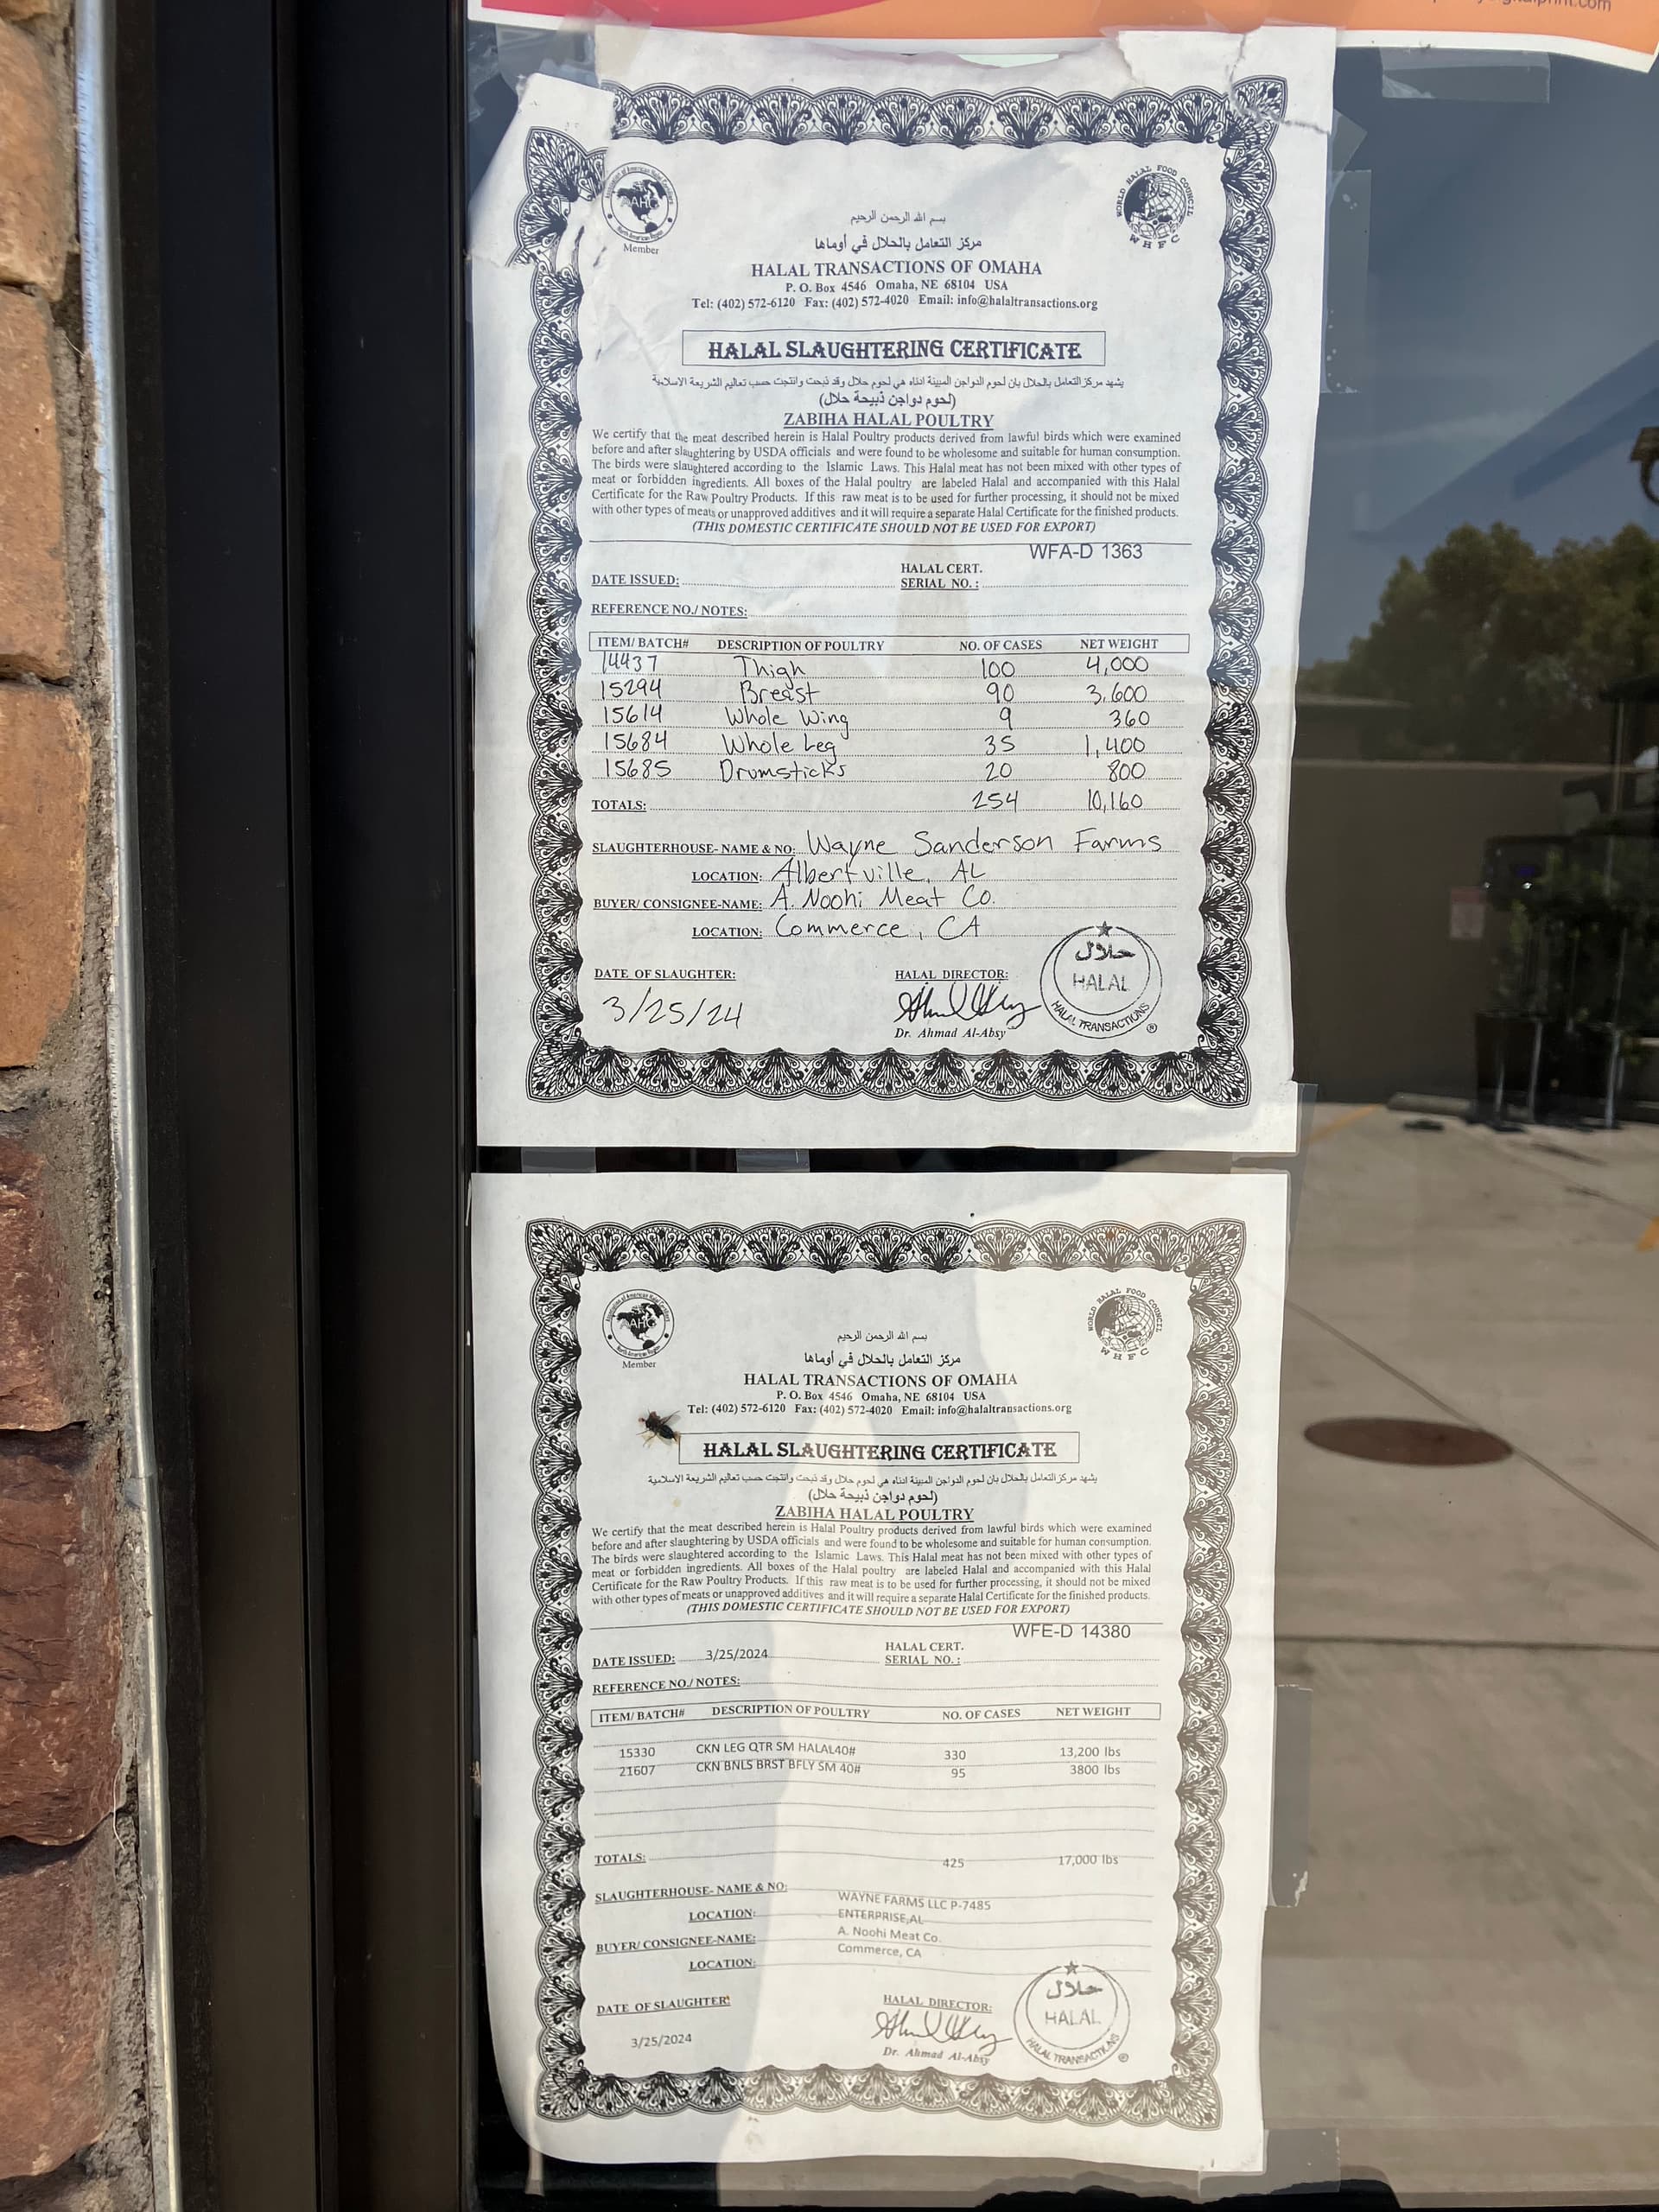 AAHC
North American Region
Member
WORLD HALAL FOOD COUNCIL
WHFC
بسم الله الرحمن الرحيم
مركز التعامل بالحلال في أوماها
HALAL TRANSACTIONS OF OMAHA
P. O. Box 4546 Omaha, NE 68104 USA
Tel: (402) 572-6120 Fax: (402) 572-4020 Email: info@halaltransactions.org
HALAL SLAUGHTERING CERTIFICATE
يشهد مركز التعامل بالحلال بان لحوم الدواجن المبينة ادناه هي لحوم حلال وقد ذبحت وانتجت حسب تعاليم الشريعة الاسلامية
(لحوم دواجن ذبيحة حلال)
ZABIHA HALAL POULTRY
We certify that the meat described herein is Halal Poultry products derived from lawful birds which were examined
before and after slaughtering by USDA officials and were found to be wholesome and suitable for human consumption.
The birds were slaughtered according to the Islamic Laws. This Halal meat has not been mixed with other types of
meat or forbidden ingredients. All boxes of the Halal poultry are labeled Halal and accompanied with this Halal
Certificate for the Raw Poultry Products. If this raw meat is to be used for further processing, it should not be mixed
with other types of meats or unapproved additives and it will require a separate Halal Certificate for the finished products.
(THIS DOMESTIC CERTIFICATE SHOULD NOT BE USED FOR EXPORT)
WFA-D 1363
DATE ISSUED: HALAL CERT. SERIAL NO. :
REFERENCE NO./ NOTES:
ITEM/ BATCH# DESCRIPTION OF POULTRY NO. OF CASES NET WEIGHT
14437 Thigh 100 4,000
15294 Breast 90 3,600
15614 Whole Wing 9 360
15684 Whole Leg 35 1,400
15685 Drumsticks 20 800
TOTALS: 254 10,160
SLAUGHTERHOUSE- NAME & NO: Wayne Sanderson Farms
LOCATION: Albertville, AL
BUYER/ CONSIGNEE-NAME: A. Noohi Meat Co.
LOCATION: Commerce, CA
DATE OF SLAUGHTER: HALAL DIRECTOR:
3/25/24
Dr. Ahmad Al-Absy
حلال
HALAL
HALAL TRANSACTIONS
®
AAHC
North American Region
Member
WORLD HALAL FOOD COUNCIL
WHFC
بسم الله الرحمن الرحيم
مركز التعامل بالحلال في أوماها
HALAL TRANSACTIONS OF OMAHA
P. O. Box 4546 Omaha, NE 68104 USA
Tel: (402) 572-6120 Fax: (402) 572-4020 Email: info@halaltransactions.org
HALAL SLAUGHTERING CERTIFICATE
يشهد مركز التعامل بالحلال بان لحوم الدواجن المبينة ادناه هي لحوم حلال وقد ذبحت وانتجت حسب تعاليم الشريعة الاسلامية
(لحوم دواجن ذبيحة حلال)
ZABIHA HALAL POULTRY
We certify that the meat described herein is Halal Poultry products derived from lawful birds which were examined
before and after slaughtering by USDA officials and were found to be wholesome and suitable for human consumption.
The birds were slaughtered according to the Islamic Laws. This Halal meat has not been mixed with other types of
meat or forbidden ingredients. All boxes of the Halal poultry are labeled Halal and accompanied with this Halal
Certificate for the Raw Poultry Products. If this raw meat is to be used for further processing, it should not be mixed
with other types of meats or unapproved additives and it will require a separate Halal Certificate for the finished products.
(THIS DOMESTIC CERTIFICATE SHOULD NOT BE USED FOR EXPORT)
WFE-D 14380
DATE ISSUED: 3/25/2024 HALAL CERT. SERIAL NO. :
REFERENCE NO./ NOTES:
ITEM/ BATCH# DESCRIPTION OF POULTRY NO. OF CASES NET WEIGHT
15330 CKN LEG QTR SM HALAL40# 330 13,200 lbs
21607 CKN BNLS BRST BFLY SM 40# 95 3800 lbs
TOTALS: 425 17,000 lbs
SLAUGHTERHOUSE- NAME & NO: WAYNE FARMS LLC P-7485
LOCATION: ENTERPRISE,AL
BUYER/ CONSIGNEE-NAME: A. Noohi Meat Co.
LOCATION: Commerce, CA
DATE OF SLAUGHTER: HALAL DIRECTOR:
3/25/2024
Dr. Ahmad Al-Absy
حلال
HALAL
HALAL TRANSACTIONS
®